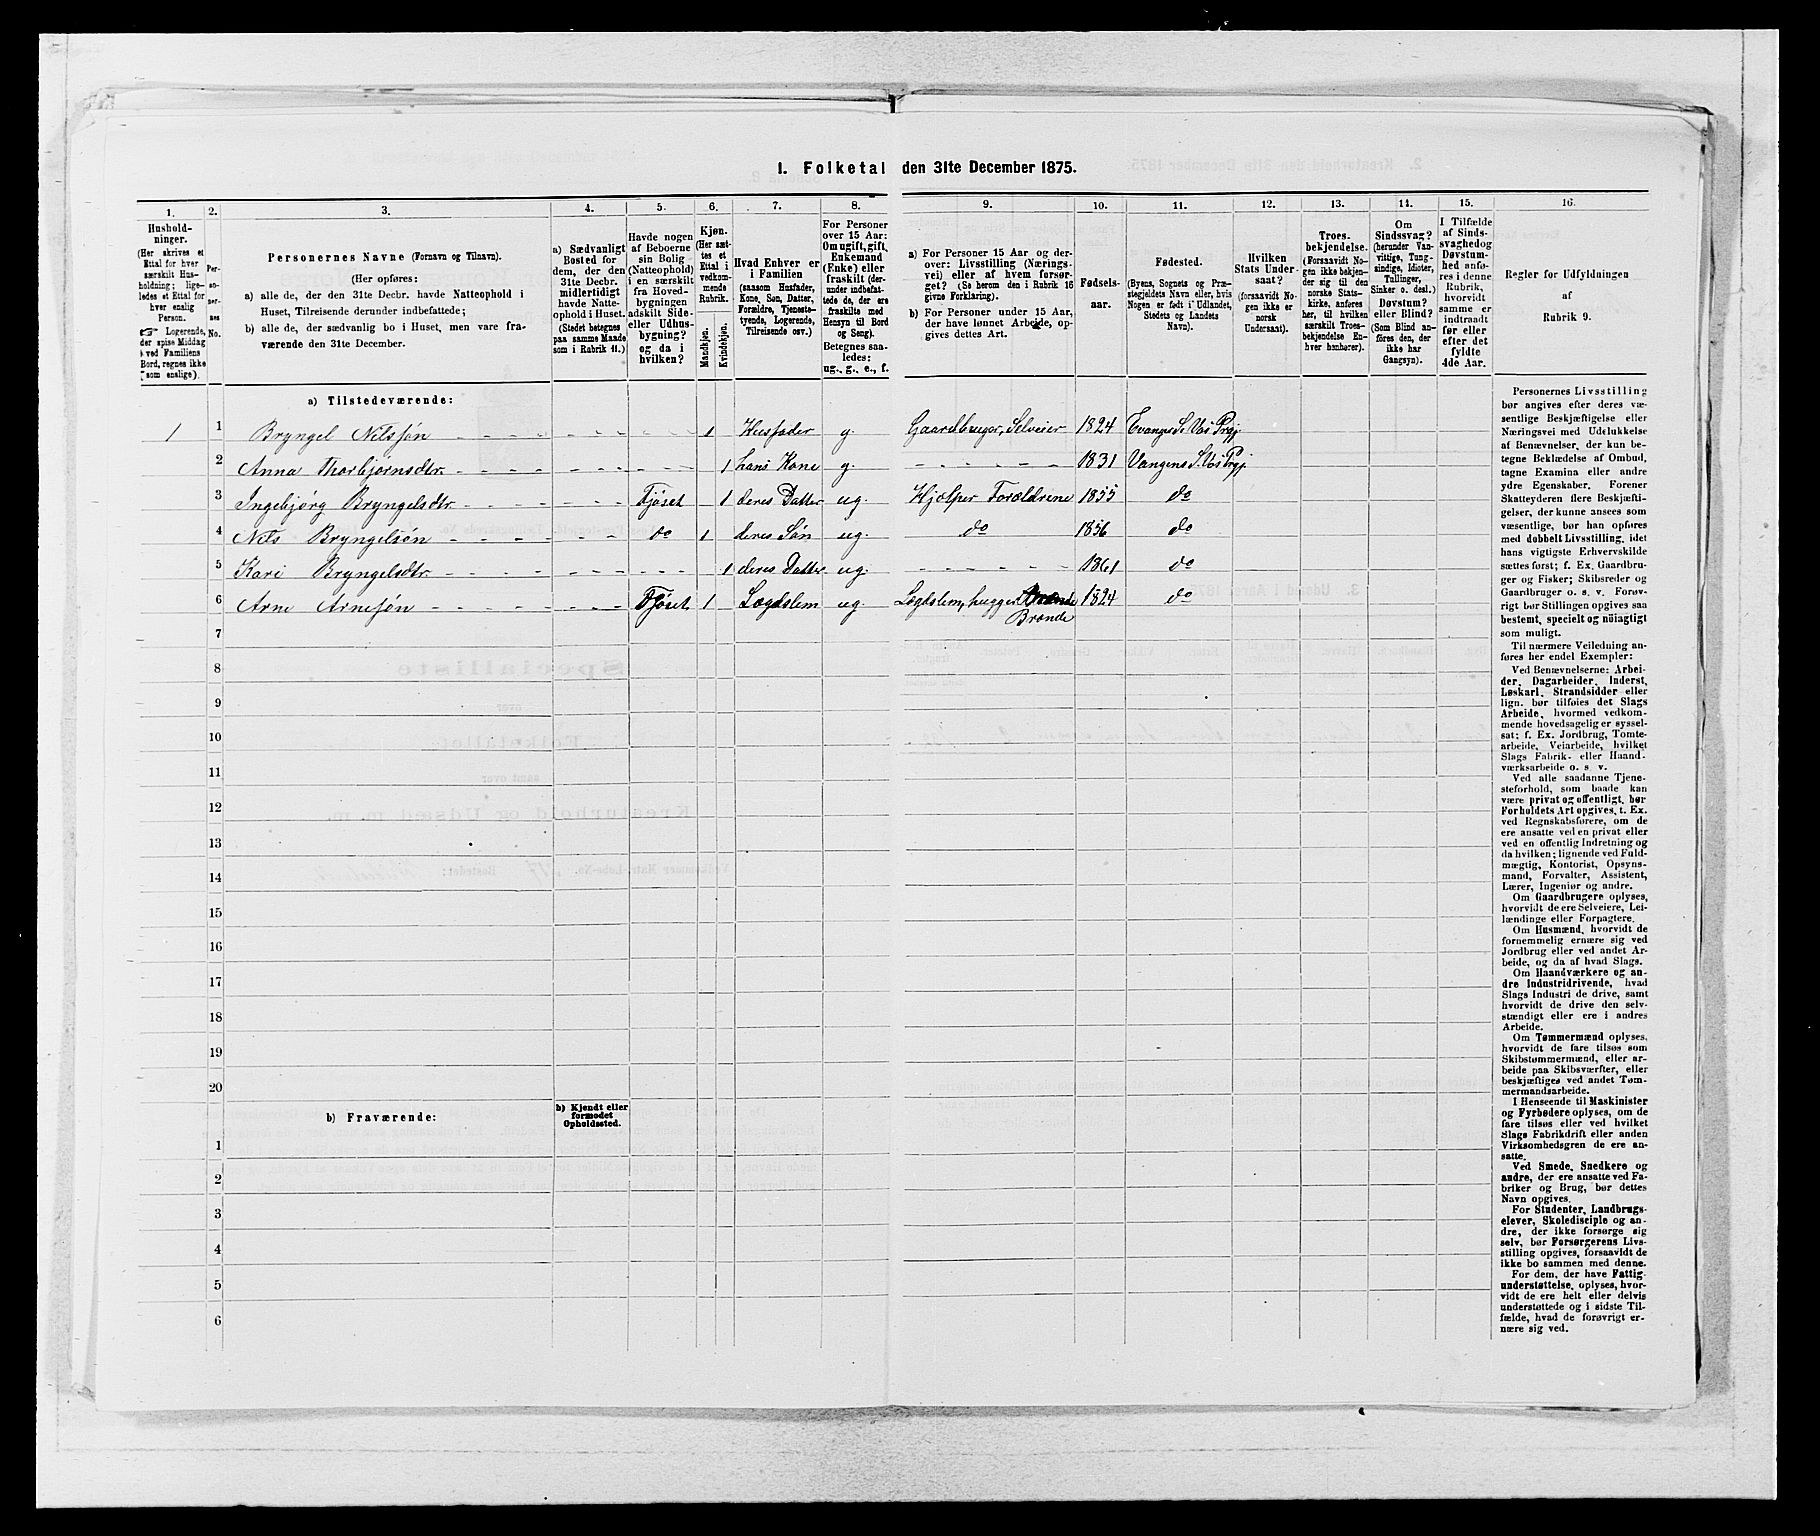 I. Folketal den 31te December 1875.
1.
2.
3.
4.
5.
6.
7.
8.
9.
10.
11.
12.
13.
14.
15.
16.
Hushold-
ninger.
(Her skrives et
Ettal for hver
særskilt Hus-
holdning; lige-
ledes et Ettal for
hver enslig
Person.
☞ Logerende,
der spise Middag
ved Familiens
Bord, regnes ikke
som enslige).
Per-
so-
ner-
nes
No.
Personernes Navne (Fornavn og Tilnavn).
(Her opføres:
a) alle de, der den 31te Decbr. havde Natteophold i
Huset, Tilreisende derunder indbefattede;
b) alle de, der sædvanlig bo i Huset, men vare fra-
værende den 31te December.
a) Sædvanligt
Bosted for
dem, der den
31te Decbr.
midlertidigt
havde Natte-
ophold i Huset.
(Stedet betegnes
paa samme Maade
som i Rubrik 11.)
Havde nogen
af Beboerne
sin Bolig
(Natteophold)
i en særskilt
fra Hoved-
bygningen
adskilt Side-
eller Udhus-
bygning?
og da i
hvilken?
Kjøn.
(Her sæt-
tes et
Ettal i
vedkom-
mende
Rubrik.
Mandkjøn.
Kvindekjøn.
Hvad Enhver er
i Familien
(saasom Husfader,
Kone, Søn, Datter,
Forældre, Tjeneste-
tyende, Logerende,
Tilreisende osv.)
For Personer
over 15 Aar:
Om ugift, gift,
Enkemand
(Enke) eller
fraskilt (der-
under indbefat-
tede de, der ere
fraskilte med
Hensyn til Bord
og Seng).
Betegnes saa-
ledes:
ug., g., e., f.
a) For Personer 15 Aar og der-
over: Livsstilling (Nærings-
vei) eller af hvem forsør-
get? (Se herom den i Rubrik 16
givne Forklaring).
b) For Personer under 15 Aar,
der have lønnet Arbeide, op-
gives dettes Art.
Fødsels-
aar.
Fødested.
(Byens, Sognets og Præ-
stegjeldets Navn eller, hvis
Nogen er født i Udlandet,
Stedets og Landets
Navn).
Hvilken
Stats Under-
saat?
(forsaavidt No-
gen ikke er
norsk
Undersaat).
Troes-
bekjendelse.
(Forsaavidt No-
gen ikke bekjen-
der sig til den
norske Stats-
kirke, anføres
her, til hvilken
særskilt Troes-
bekjendelse En-
hver henhører).
Om
Sindssvag?
(herunder Van-
vittige, Tung-
sindige, Idioter,
Tullinger,
Sinker o. desl.)
Døvstum?
eller Blind?
(Som Blind an-
føres den, der
ikke har
Gangsyn).
I Tilfælde
af Sinds-
svaghed og
Døvstum-
hed anfø-
res i denne
Rubrik,
hvorvidt
samme er
indtraadt
før eller
efter det
fyldte
4de Aar.
Regler for Udfyldningen
af
Rubrik 9.
a) Tilstedeværende:
1 1 Bryngel Nilssøn 1 Husfader g. Gaardbruger, Selveier 1824 Evanger S. Vos Prgj.
2 Anna Thorbjørnsdtr. 1 hans Kone g. 1831 Vangens S. Vos Prgj.
3 Ingebjørg Bryngelsdtr. Fjøset 1 deres Datter ug. Hjælper Forældrene 1855 do
4 Nils Bryngelsøn do 1 deres Søn ug. do 1856 do
5 Kari Bryngelsdtr. 1 deres Datter ug. 1861 do
6 Arne Arnesøn Fjøset 1 Lægdslem ug. Lægdslem, hugger Brænde 1824 do
7
8
9
10
11
12
13
14
15
16
17
18
19
20
b) Fraværende:
b) Kjendt eller
formodet
Opholdssted.
1
2
3
4
5
6
Personernes Livsstilling
bør angives efter deres væ-
sentlige Beskjæftigelse eller
Næringsvei med Udelukkelse
af Benævnelser, der kun be-
tegne Beklædelse af Ombud,
tagne Examina eller andre
ydre Egenskaber. Forener
Skatteyderen flere Beskjæfti-
gelser, der kunne ansees som
væsentlige, bør han opføres
med dobbelt Livsstilling, idet
hans vigtigste Erhvervskilde
sættes først; f. Ex. Gaardbru-
ger og Fisker; Skibsreder og
Gaardbruger o. s. v. Forøv-
rigt bør Stillingen opgives saa
bestemt, specielt og nöiagtigt
som muligt.
Til nærmere Veiledning an-
føres her endel Exempler:
Ved Benævnelserne: Arbei-
der, Dagarbeider, Inderst,
Løskarl, Strandsidder eller
lign. bør tilføies det Slags
Arbeide, hvormed vedkom-
mende hovedsagelig er syssel-
sat; f. Ex. Jordbrug, Tomte-
arbeide, Veiarbeide, hvilket
Slags Fabrik- eller Haand-
værksarbeide o. s. v.
Ved alle saadanne Tjene-
steforhold, som baade kan
være privat og offentligt, bør
Forholdets Art opgives, t. Ex.
ved Regnskabsførere, om de
ere ansatte ved en privat eller
ved en offentlig Indretning og
da hvilken; lignende ved Fuld-
mægtig, Kontorist, Opsyns-
mand, Forvalter, Assistent,
Lærer, Ingeniør og andre.
Om Gaardbrugere oplyses,
hvorvidt de ere Selveiere, Lei-
lændinge eller Forpagtere.
Om Husmænd, hvorvidt de
fornemmelig ernære sig ved
Jordbrug eller ved andet Ar-
beide, og da af hvad Slags.
Om Haandværkere og an-
dre Industridrivende, hvad
Slags Industri de drive, samt
hvorvidt de drive den selv-
stændigt eller ere i andres
Arbeide.
Om Tømmermænd oplyses,
hvorvidt de fare tilsøs som
Skibstømmermænd, eller ar-
beide paa Skibsværfter, eller
beskjæftiges ved andet Tøm-
mermandsarbeide.
I Henseende til Maskinister
og Fyrbødere oplyses, om de
fare tilsøs eller ved hvilket
Slags Fabrikdrift eller anden
Virksomhedsgren de ere an-
satte.
Ved Smede, Snedkere og
andre, der ere ansatte ved Fa-
briker og Brug, bør dettes
Navn opgives.
For Studenter, Landbrugs-
elever, Skoledisciple og an-
dre, der ikke forsørge sig
selv, bør Forsørgerens Livs-
stilling opgives, forsaavidt de
ikke bo sammen med denne.
For dem, der have Fattig-
understøttelse, oplyses, hvor-
vidt de ere helt eller delvis
understøttede og i sidste Til-
fælde, hvad de forøvrigt er-
nære sig ved.